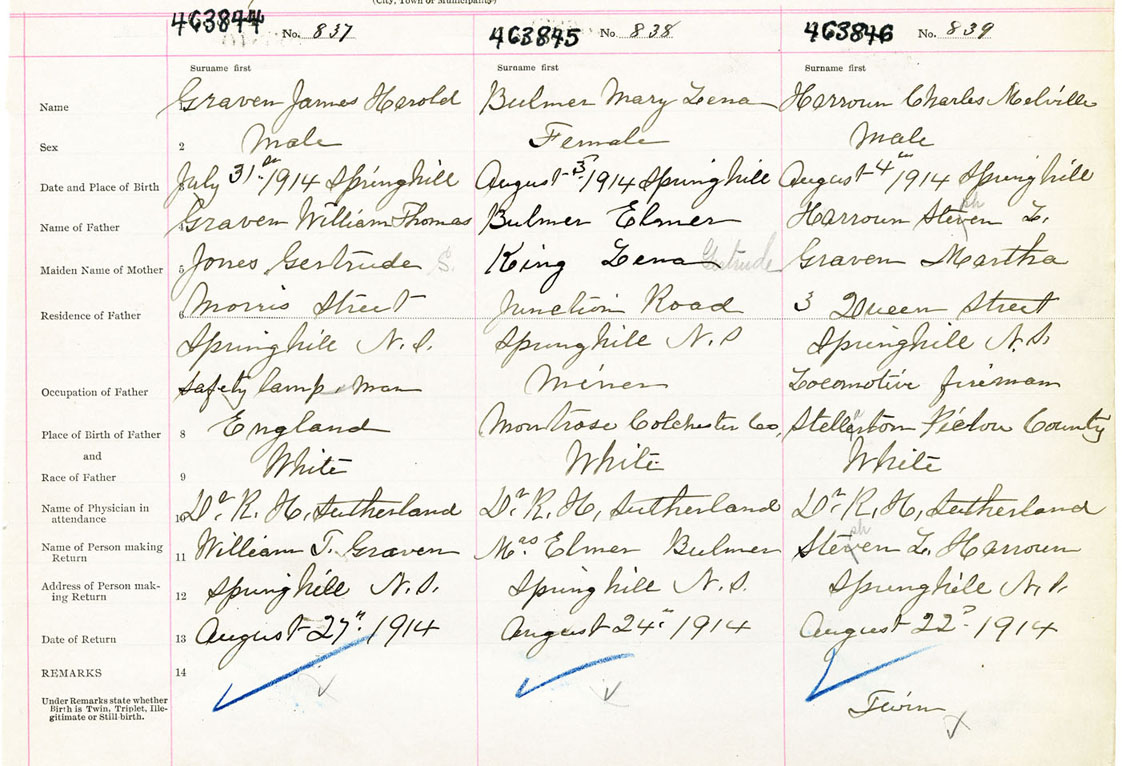 (City, Town or Municipality)
463844 No. 837 463845 No 838 463846 No. 839
Surname first Surname first Surname first
Name Graven James Harold Bulmer Mary Lena Harroun Charles Melville
Sex 2 Male Female Male
Date and Place of Birth July 31st 1914 Springhill August 3rd 1914 Springhill August 4th 1914 Springhill
Name of Father Graven William Thomas Bulmer Elmer Harroun Steven L. ph
Maiden Name of Mother 5 Jones Gertrude S. King Lena Gertrude Graven Martha
Residence of Father 6 Morris Street Junction Road 3 Queen Street
Springhill N.S. Springhill N.S Springhill N.S.
Occupation of Father safety lamp man Miner Locomotive fireman
Place of Birth of Father 8 England Montrose Colchester Co, Stellerton Pictou County
and
Race of Father 9 White White White
Name of Physician in
attendance 10 Dr R. H. Sutherland Dr R. H. Sutherland Dr R. H. Sutherland
Name of Person making
Return 11 William T. Graven Mrs Elmer Bulmer Steven L. Harroun ph
Address of Person mak-
ing Return 12 Springhill N.S. Springhill N.S. Springhill N.S.
Date of Return 13 August 27th 1914 August 24th 1914 August 22nd 1914
REMARKS 14
Under Remarks state whether
Birth is Twin, Triplet, Ille-
gitimate or Still-birth.
Twin